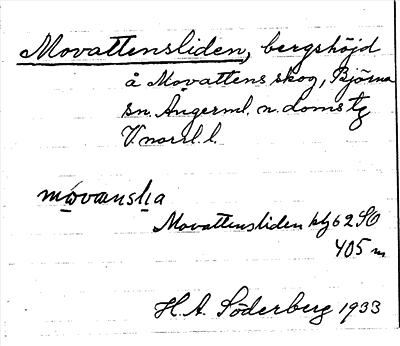 Movattensliden, bergshöjd
å Movattens skog, Björna
sn. Ångerml. n. doms tg
V. norrl. l.
Movattensliden kbg 62 SO
405 m
H. A. Söderberg 1933